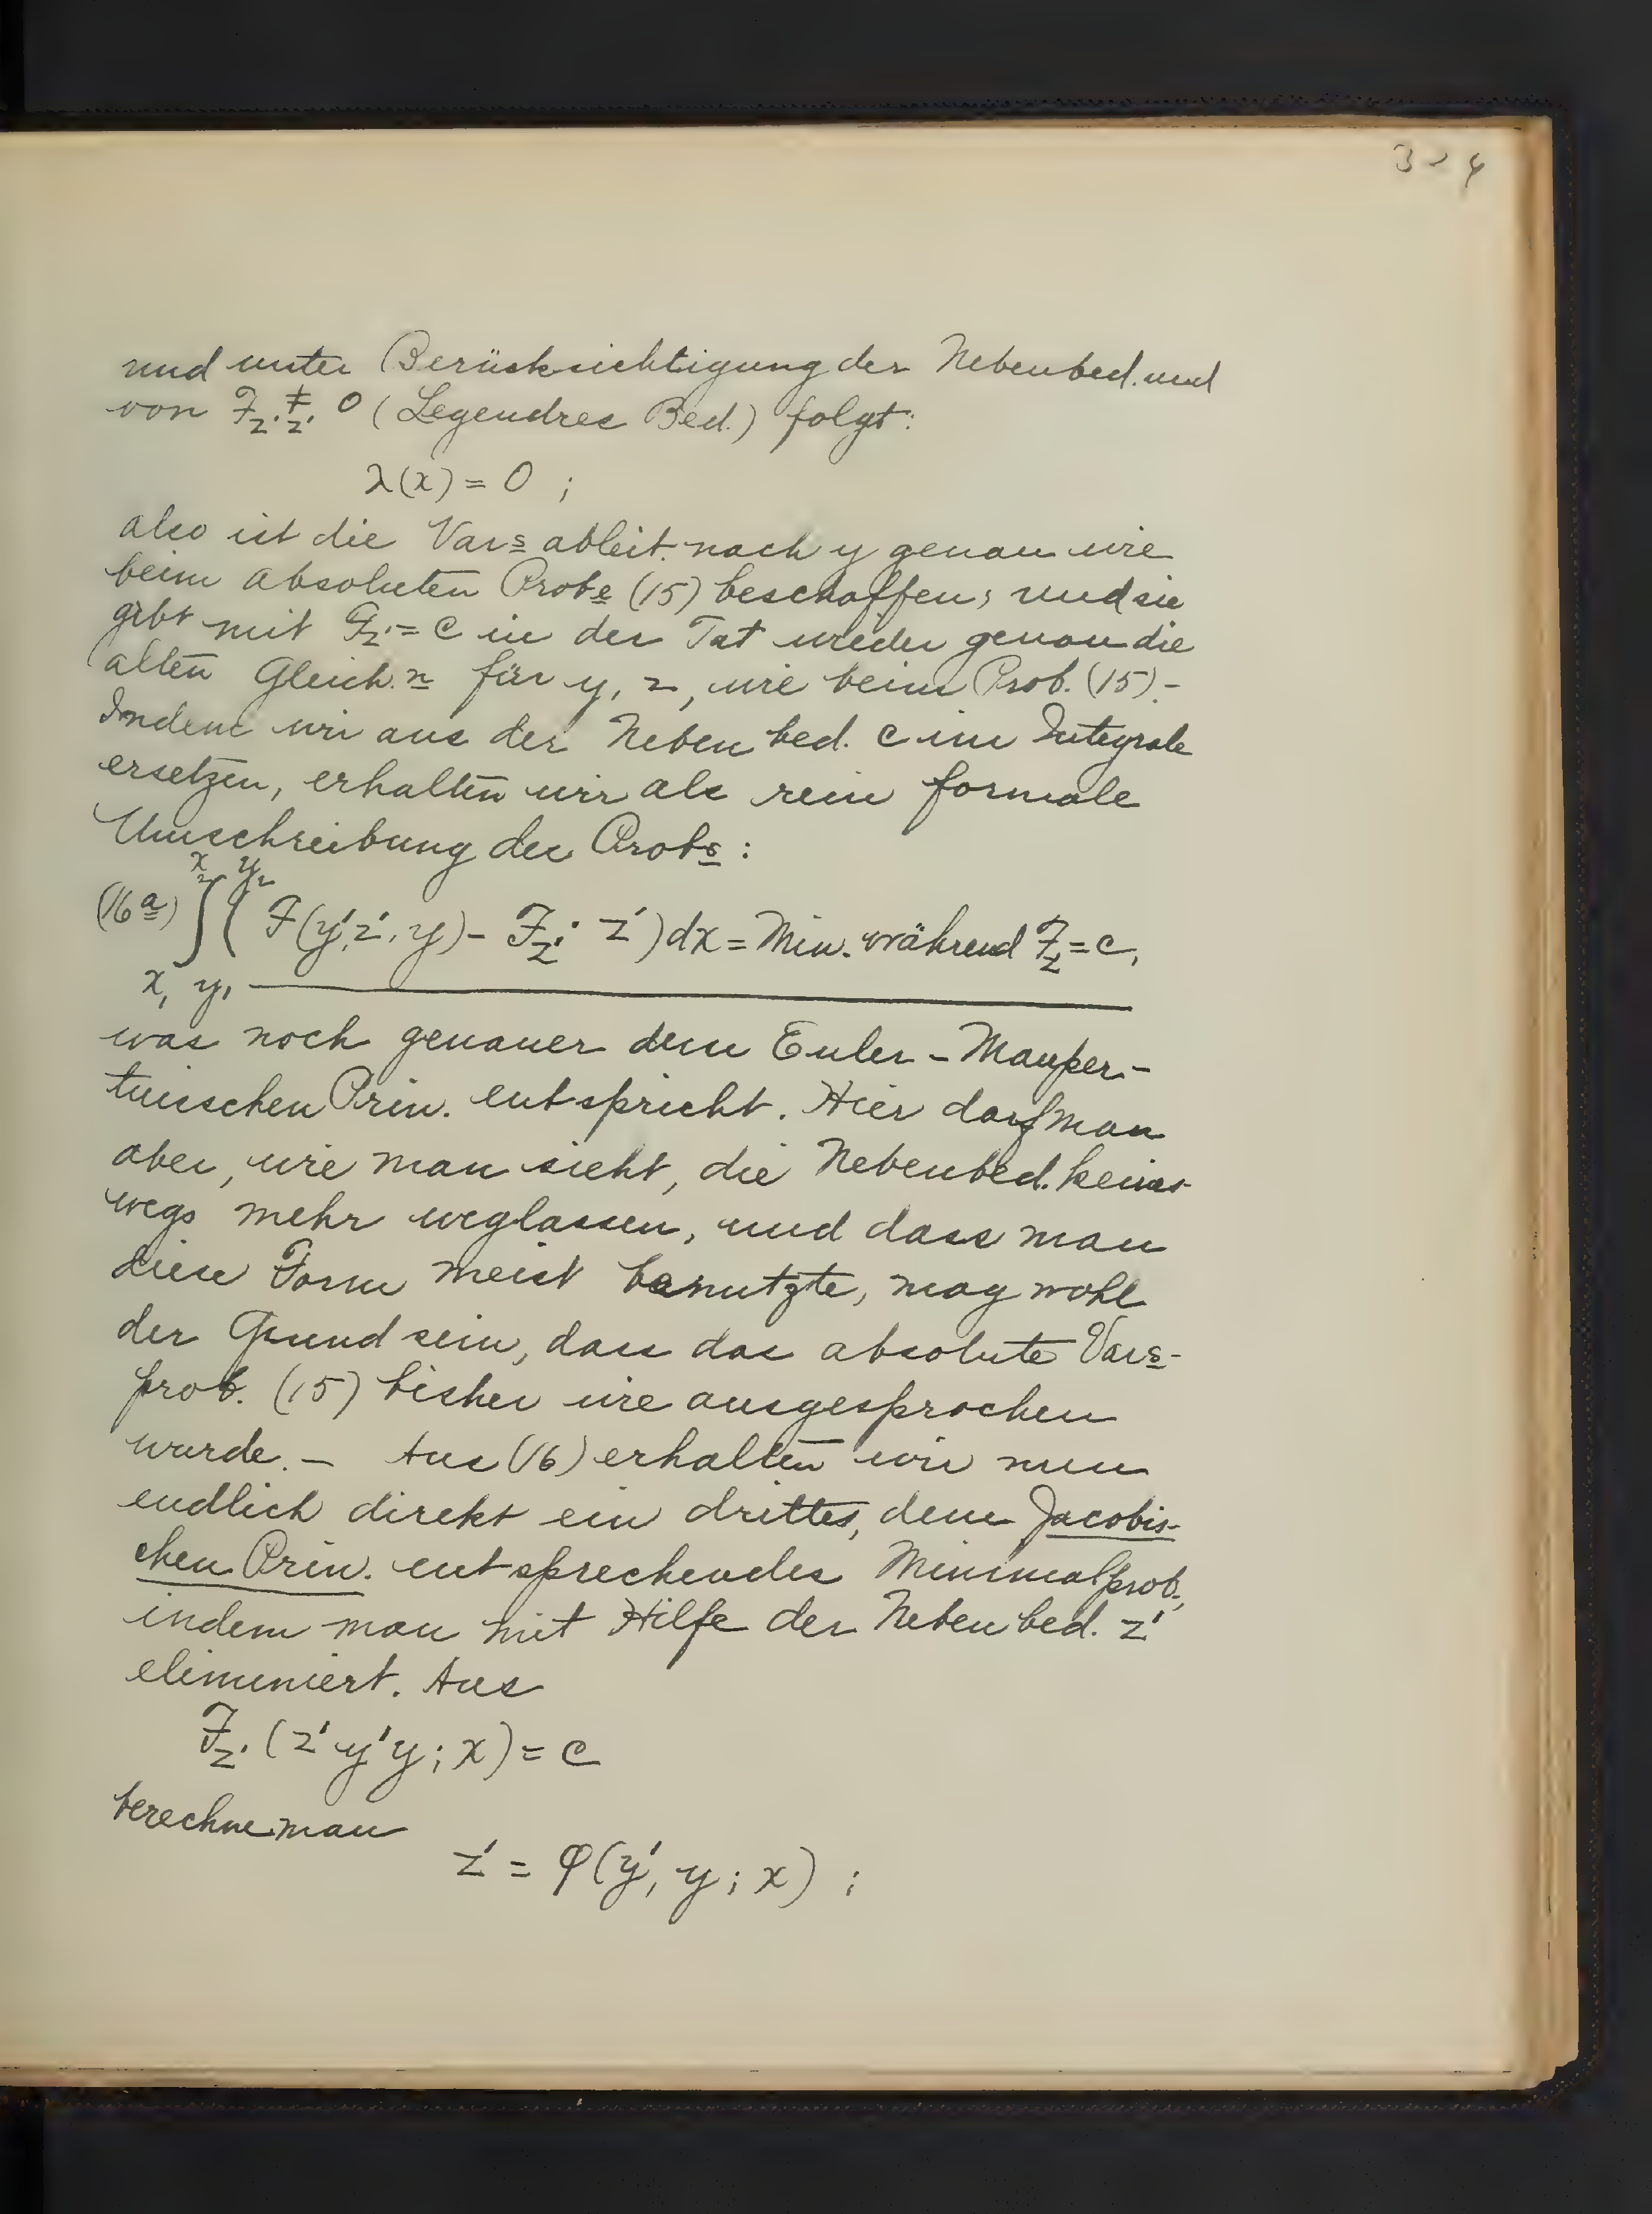 und unter Berücksichtigung der Nebenbed. und
von F_{z'z'} ≠ 0 (Legendres Bed.) folgt:
λ(x) = 0 ;
also ist die Vars ableit. nach y genau wie
beim absoluten Probe (15) beschaffen; und sie
gibt mit F_{z'} = c in der Tat wieder genau die
alten Gleich.n für y, z, wie beim Prob. (15).-
Indem wir aus der Nebenbed. c im Integrale
ersetzen, erhalten wir als rein formale
Umschreibung des Probs :
(16a) ∫_{x_1 y_1}^{x_2 y_2} ( F(y', z', y) - F_{z'} z' ) dx = Min. während F_{z'} = c,
was noch genauer dem Euler-Mauper-
tuisschen Prin. entspricht. Hier darf man
aber, wie man sieht, die Nebenbed. keines
wegs mehr weglassen, und dass man
diese Form meist benutzte, mag wohl
der Grund sein, dass das absolute Vars-
prob. (15) bisher nie ausgesprochen
wurde. - Aus (16) erhalten wir nun
endlich direkt ein drittes, dem Jacobis-
chen Prin. entsprechendes Minimalprob.,
indem man mit Hilfe der Nebenbed. z'
eliminiert. Aus
F_{z'} (z' y' y ; x) = c
berechne man
z' = φ(y', y ; x) ;